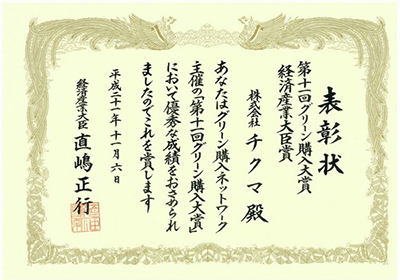 表彰状
第十一回グリーン購入大賞
経済産業大臣賞
株式会社 チクマ 殿
あなたはグリーン購入ネットワーク
主催の「第十一回グリーン購入大賞」
において優秀な成績をおさめられ
ましたのでこれを賞します
平成二十一年十一月六日
経済産業大臣 直嶋正行